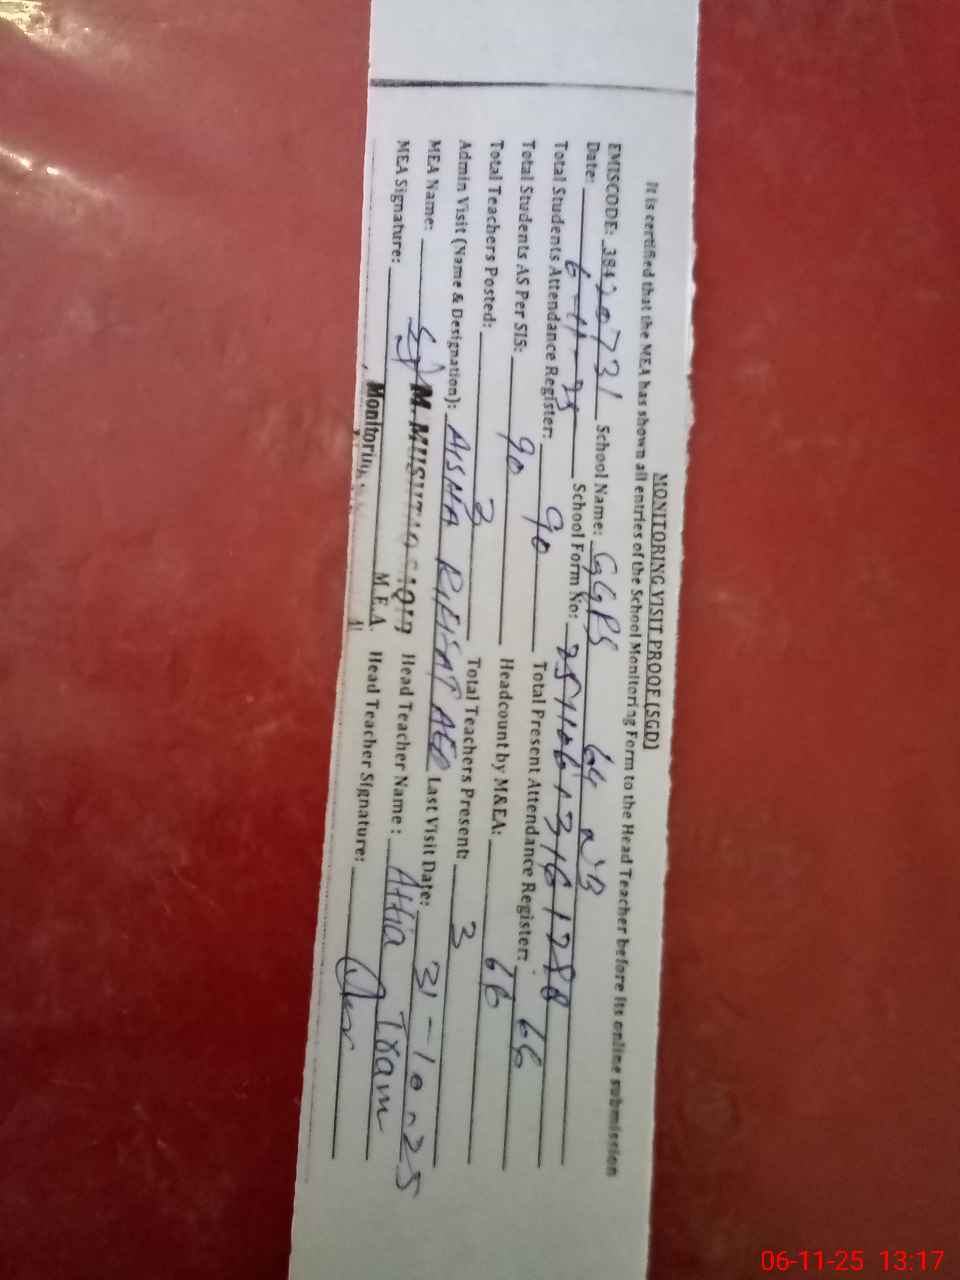 MONITORING VISIT PROOF (SGD)
It is certified that the MEA has shown all entries of the School Monitoring Form to the Head Teacher before its online submission
EMISCODE: 38420731 School Name: GGPS 64 NB
Date: 6-11-25 School Form No:
Total Students Attendance Register: 90 Total Present Attendance Register: 66
Total Students AS Per SIS: 90 Headcount by M&EA: 66
Total Teachers Posted: 3 Total Teachers Present: 3
Admin Visit (Name & Designation): AISHA RIFFAT AEO Last Visit Date: 31-10-25
MEA Name: M. MUSHTAQ Head Teacher Name: Attia
MEA Signature: Monitoring M.E.A. Head Teacher Signature:
06-11-25 13:17